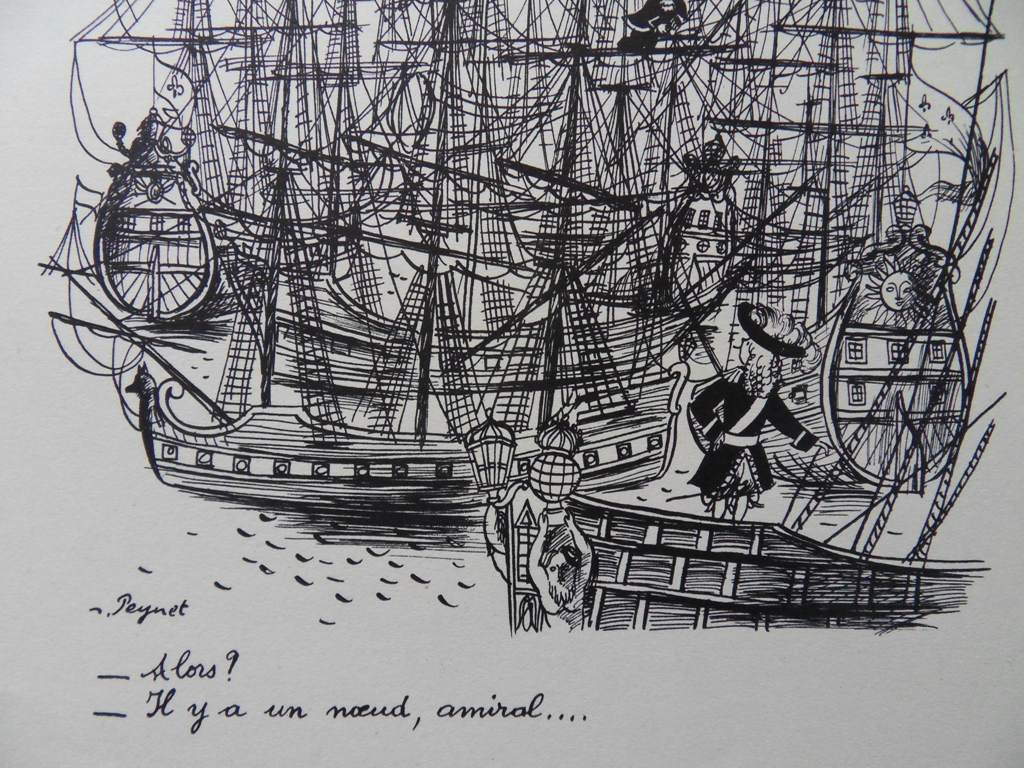 Peynet
— Alors ?
— Il y a un nœud, amiral....